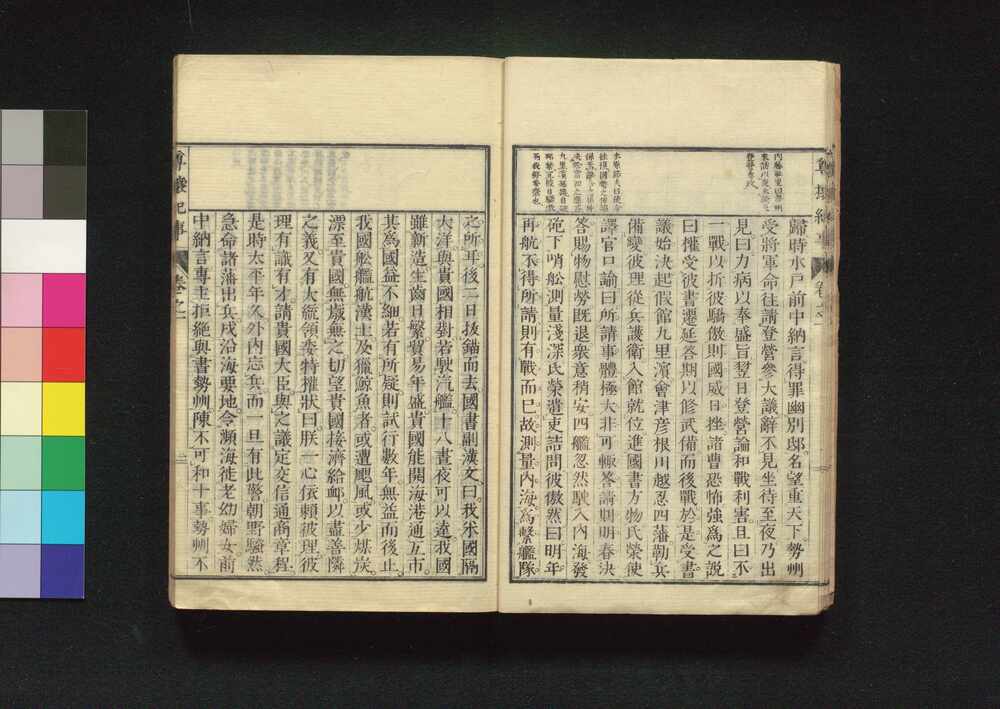 歸時水戸前中納言得罪幽別邸名望重天下勢州
受將軍命往請登營參大議辭不見坐待至夜乃出
見曰力病以奉盛旨翌日登營論和戰利害且曰不
一戰以折彼驕傲則國威日挫諸曹恐怖強為之説
曰權受彼書遷延答期以修武備而後戰於是受書
議始決起假館九里濱會津彦根川越忍四藩勒兵
備變彼理從兵護衛入館就位進國書方物氏榮使
譯官口諭曰所請事體極大非可輙答請期明春決
答賜物慰勞既退衆意稍安四艦忽然駛入內海發
砲下哨舩測量淺深氏榮遣吏詰問彼傲然曰明年
再航不得所請則有戰而已故測量內海為繫艦隊
尊攘紀事
卷之一
之所耳後二日抜錨而去國書副漢文曰我米國隔
大洋與貴國相對若駛汽艦十八晝夜可以達我國
雖新造生齒日繁貿易年盛貴國能開海港通互市
其為國益不細若有所疑則試行數年無益而後止
我國舩艦航漢土及獵鯨魚者或遭颶風或少煤炭
漂至貴國無歲無之切望貴國接濟給卹以盡善隣
之義又有大統領委特權狀曰朕一心依賴彼理彼
理有識有才請貴國大臣與之議定交信通商章程
是時太平年久外內忘兵而一旦有此警朝野騷然
急命諸藩出兵戍沿海要地令瀕海徙老幼婦女前
中納言專主拒絶與書勢州陳不可和十事勢州不
尊攘紀事
卷之一